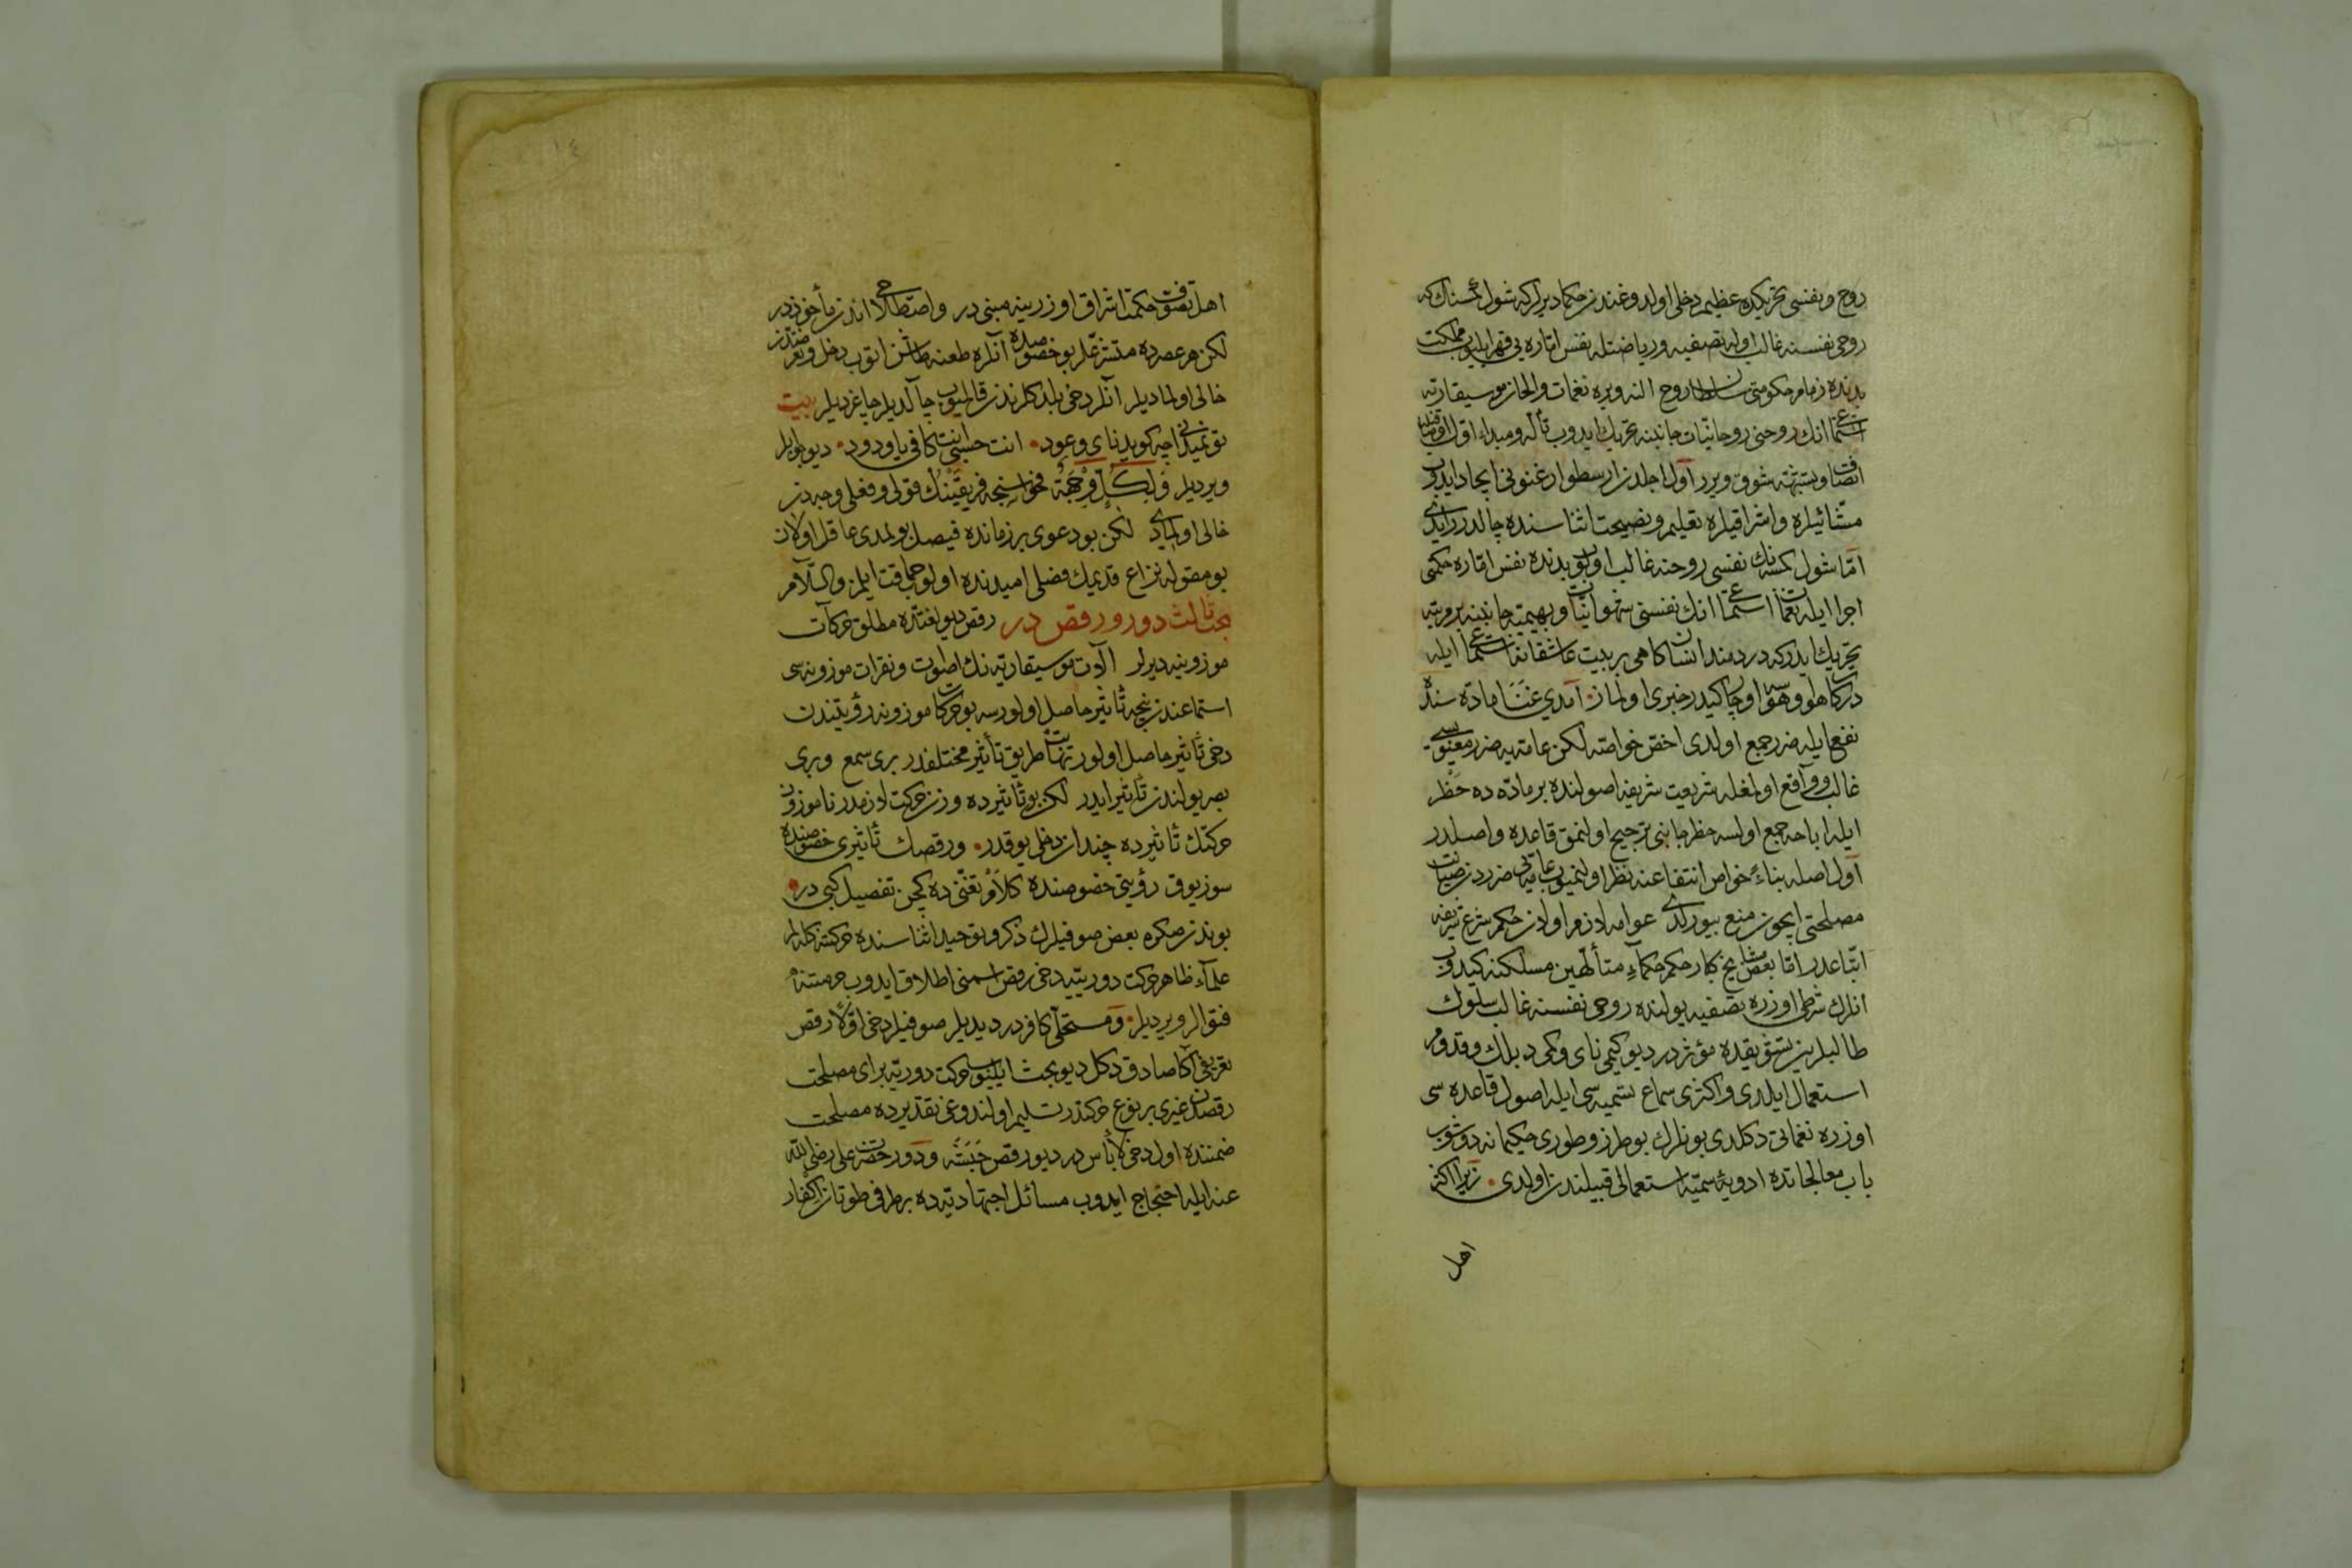 روح و نفسی تحریكده عظیم دخلی اولدوغندن حكما دیرلر كه شول كسنك كه
روحی نفسنه غالب اوله تصفیه و ریاضتله نفس اماره یی قهر ایلیوب مملكت
بدنده زمام حكومتی سلطان روح النه ویره نغمات و الحان موسیقاریه
استماعی انك روحنی روحانیات جانبنه تحریك ایدوب تأله و مبداء اول
اتصاف و تشبهه شوق ویرر اول اجلدن ارسطو ارغنونی ایجاد ایدوب
مشائیلره و اشراقیلره تعلیم و نصیحت اثناسنده چالدرر ایدی
اما شول كسنه نك نفسی روحنه غالب اولوب بدنده نفس اماره حكمنی
اجرا ایله نغمات استماعی انك نفسنی شهوانیات و بهیمیه جانبنه بر مرتبه
تحریك ایدر كه دردمند انسان كاهی بر بیت عاشقانه استماعی ایله
دركاه هو و هوسه اوچار كیدر خبری اولماز آمدی غنا ماده سنده
نفع ایله ضرر جمع اولدی اخص خواصه لكن عامه یه ضرر معنوسی
غالب و واقع اولمغله شریعت شریفه اصولنده بر ماده ده حظر
ایله اباحه جمع اولسه حظر جانبی ترجیح اولنمق قاعده و اصلدر
اول اصله بناء خواص انتفاعنه نظر اولنمیوب عامه یی ضرردن صیانت
مصلحتی ایچون منع بیورلدی عوامه لازم اولان حكم شرع شریفه
اتباعدر اما بعض مشایخ كبار حكم حكماء متألهین مسلكنه كیدوب
انلرك شرطی اوزره تصفیه یولنده روحی نفسنه غالب سلوك
طالبلرین تشویقده مؤثردر دیو كیمی نای و كمی دبلك و قدوم
استعمال ایلدی و اكثری سماع تسمیه سی ایله اصول قاعده سی
اوزره نغماتی دكلدی بونلرك بو طرز و طوری حكیمانه دوشوب
باب معالجاتده ادویهٔ سمیه استعمالی قبیلندن اولدی زیرا اكثر
اهل
اهل تصوف حكمت اشراق اوزرینه مبنی در و اصطلاحی اندن مأخوذدر
لكن هر عصرده متشرعلر بو خصوصده آنلره طعنه طاشن اتوب دخل و تعرضدن
خالی اولمادیلر آنلر دخی بلدكلرندن قالمیوب چالدیلر چاغردیلر بیت
تو نمیدانی چه كوید نای و عود انت حسبی انت كافی یا ودود دیو جوابلر
ویردیلر ولكل وجهة فحواسنجه فریقینك قولی و فعلی وجه دن
خالی اولمادی لكن بو دعوی بر زمانده فیصل بولمدی عاقل اولان
بو مقوله نزاع قدیمك فصلی امیدنده اولوب حماقت ایلمز والسلام
بحث ثالث دور و رقص در رقص دیو لغتده مطلق حركات
موزونه یه دیرلر آلات موسیقاریه نك اصوات و نقرات موزونه سی
استماعندن نیجه تأثیر حاصل اولورسه بو حركات موزونه رؤیتندن
دخی تأثیر حاصل اولور نهایت طریق تأثیر مختلفدر بری سمع و بری
بصر یولندن تأثیر ایدر لكن بو تأثیرده وزن حركت لازمدر ناموزون
حركتك تأثیرده چندان دخلی یوقدر و رقصك تأثیری خصوصنده
سوز یوق رؤیتی خصوصنده كلام تغنی ده كچن تفصیل كبی در
بوندن صكره بعض صوفیلرك ذكر و توحید اثناسنده حركتنه كلدلر
علماء ظاهر حركت دوریه یه دخی رقص اسمنی اطلاق ایدوب حرمتنه
فتوالر ویردیلر و مستحلی كافردر دیدیلر صوفیلر دخی اولا رقص
تعریفی اكا صادق دكل دیو بحث ایلیوب حركت دوریه برای مصلحت
رقصدن غیری بر نوع حركتدر تسلیم اولندوغی تقدیرده مصلحت
ضمننده اول دخی لا بأس در دیو رقص حبشه و دور حضرت علی رضی الله
عنه ایله احتجاج ایدوب مسائل اجتهادیه ده بر طرفی طوتان اكفار